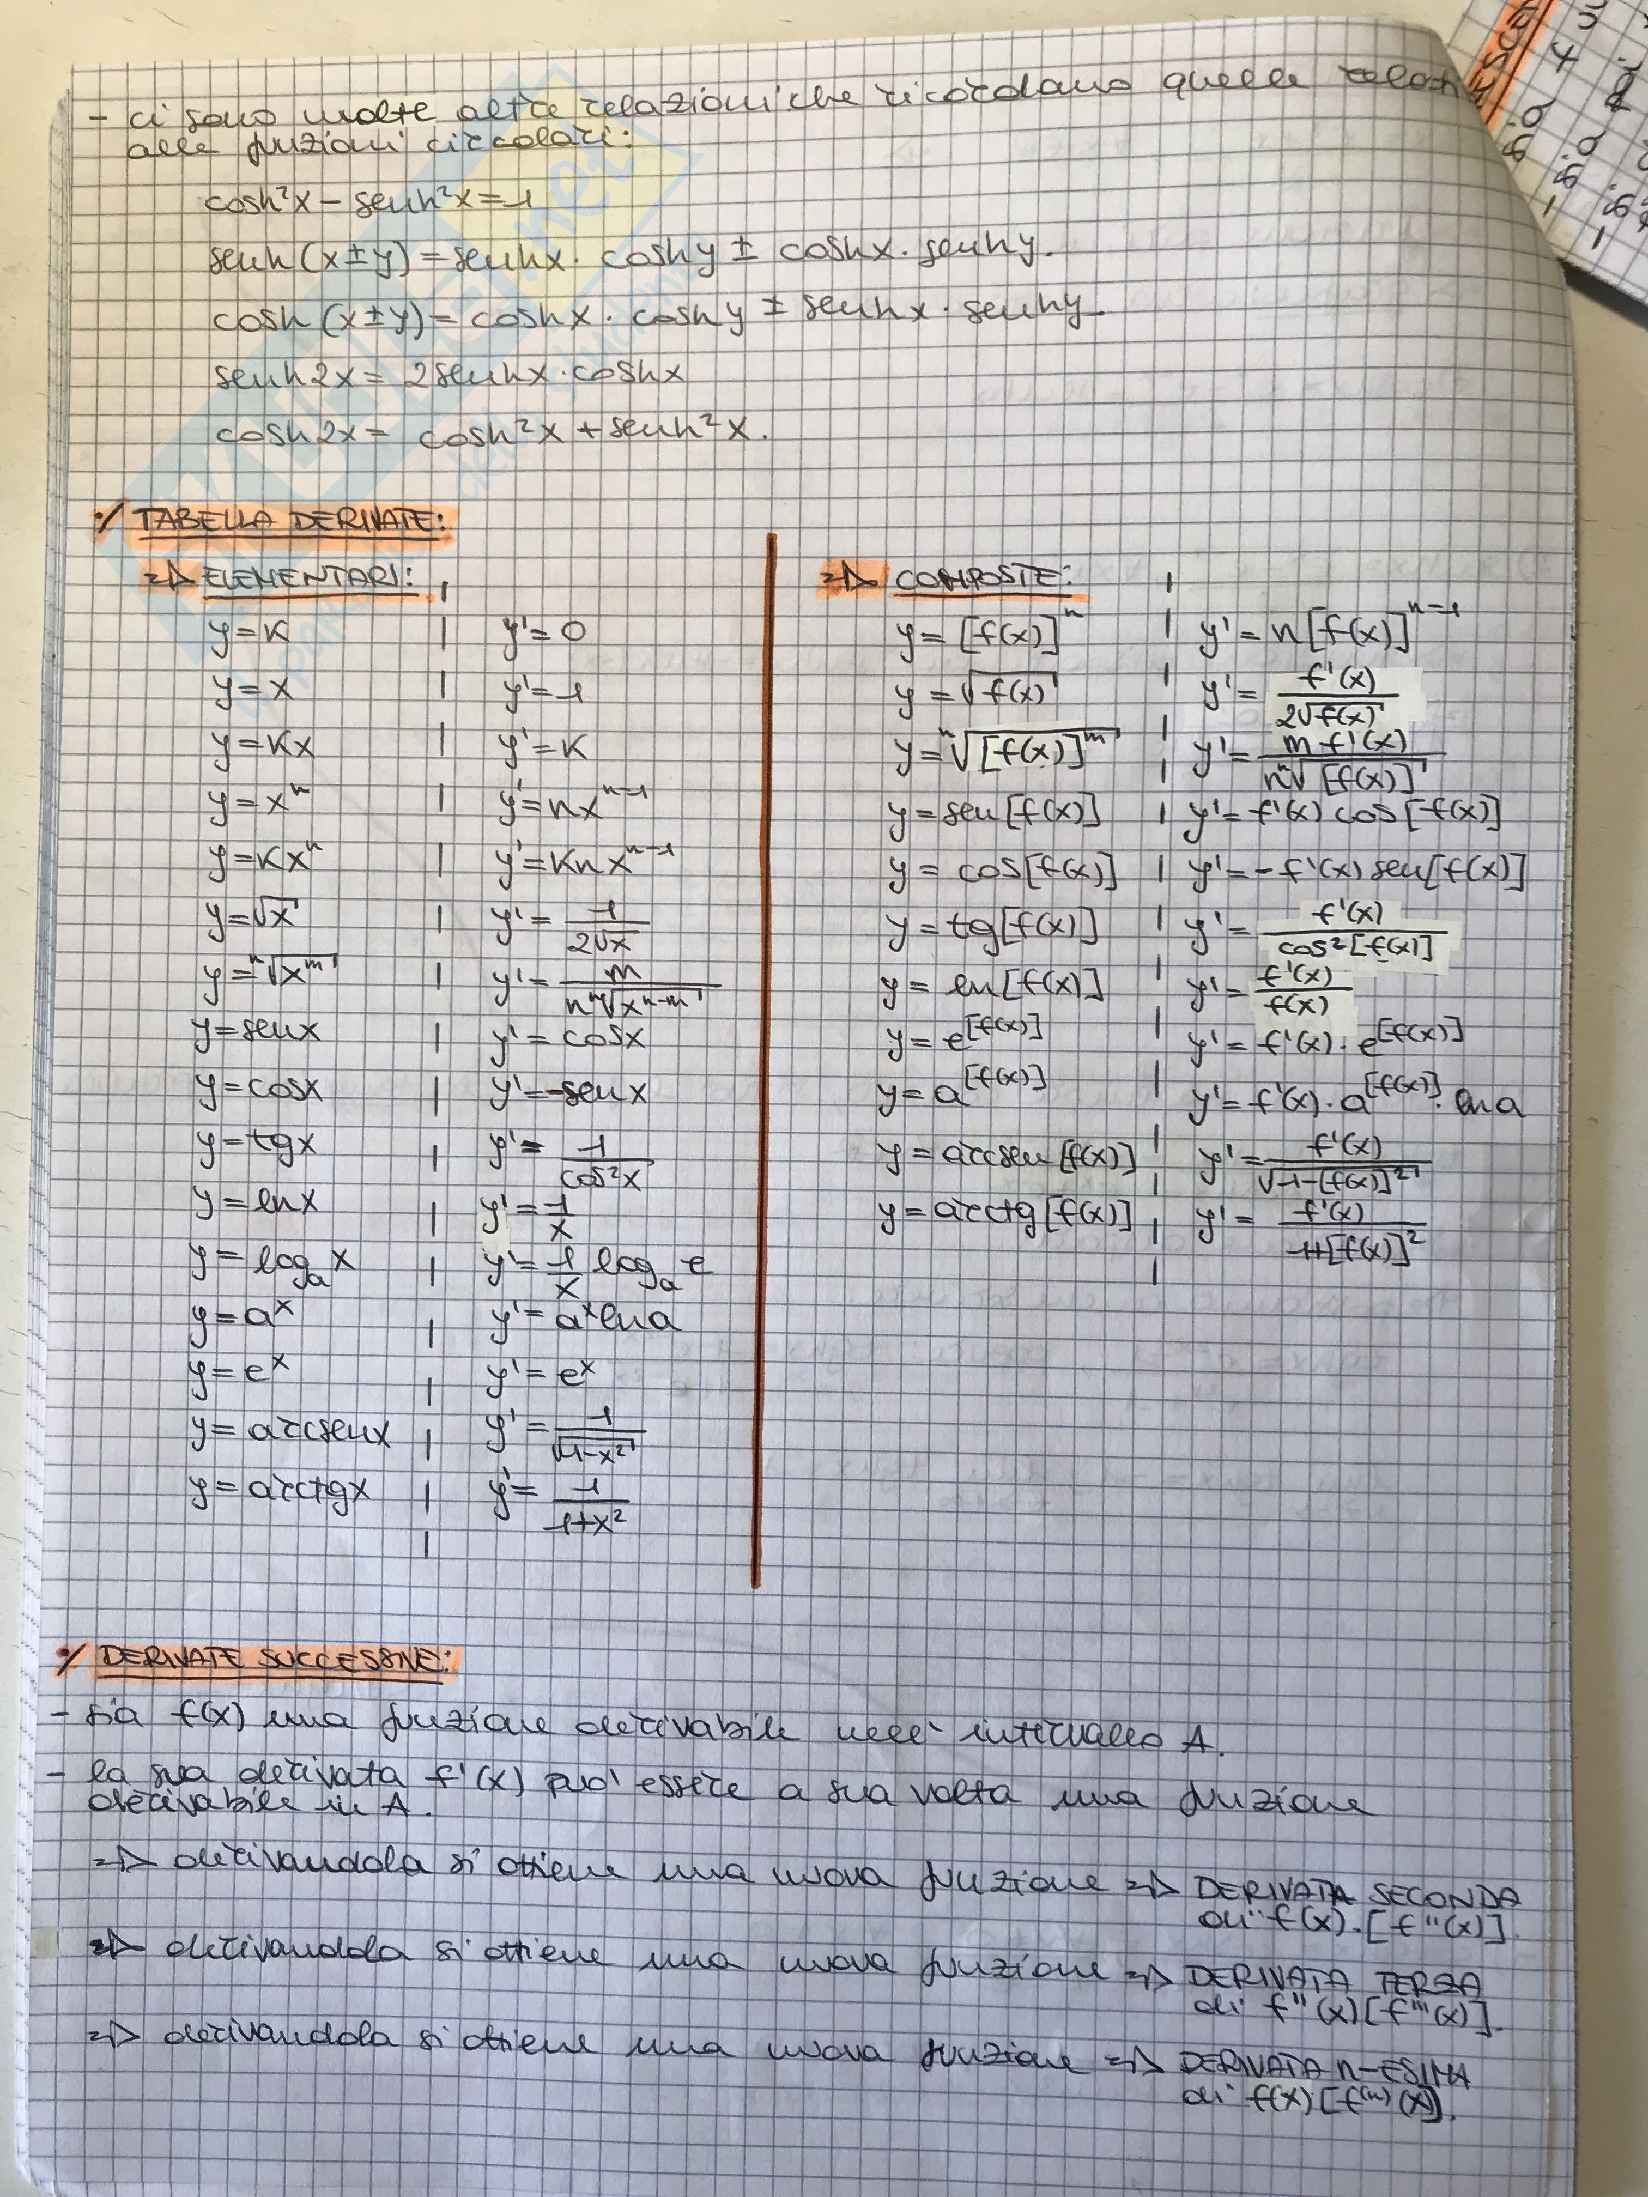 - ci sono molte altre relazioni che ricordano quelle
alle funzioni circolari:
cosh²x - senh²x = 1
senh(x±y) = senhx · coshy ± coshx · senhy.
cosh(x±y) = coshx · coshy ± senhx · senhy
senh2x = 2senhx · coshx
cosh2x = cosh²x + senh²x.
·/ TABELLA DERIVATE:
=> ELEMENTARI:
y=K | y'=0
y=x | y'=1
y=Kx | y'=K
y=xⁿ | y'=nxⁿ⁻¹
y=Kxⁿ | y'=Knxⁿ⁻¹
y=√x | y'=1/(2√x)
y=ⁿ√(xᵐ) | y'=m/(n ⁿ√(xⁿ⁻ᵐ))
y=senx | y'=cosx
y=cosx | y'=-senx
y=tgx | y'=1/cos²x
y=lnx | y'=1/x
y=logₐx | y'=1/x logₐe
y=aˣ | y'=aˣlna
y=eˣ | y'=eˣ
y=arcsenx | y'=1/√(1-x²)
y=arctgx | y'=1/(1+x²)
=> COMPOSTE:
y=[f(x)]ⁿ | y'=n[f(x)]ⁿ⁻¹
y=√f(x) | y'=f'(x)/(2√f(x))
y=ⁿ√([f(x)]ᵐ) | y'=m f'(x)/(n ⁿ√[f(x)])
y=sen[f(x)] | y'=f'(x) cos[f(x)]
y=cos[f(x)] | y'=-f'(x) sen[f(x)]
y=tg[f(x)] | y'=f'(x)/cos²[f(x)]
y=ln[f(x)] | y'=f'(x)/f(x)
y=e^[f(x)] | y'=f'(x)·e^[f(x)]
y=a^[f(x)] | y'=f'(x)·a^[f(x)]·lna
y=arcsen[f(x)] | y'=f'(x)/√(1-[f(x)]²)
y=arctg[f(x)] | y'=f'(x)/(1+[f(x)]²)
·/ DERIVATE SUCCESSIVE:
- sia f(x) una funzione derivabile nell'intervallo A.
- la sua derivata f'(x) può essere a sua volta una funzione
derivabile in A.
=> derivandola si ottiene una nuova funzione => DERIVATA SECONDA
di f(x).[f''(x)].
=> derivandola si ottiene una nuova funzione => DERIVATA TERZA
di f''(x)[f'''(x)].
=> derivandola si ottiene una nuova funzione => DERIVATA n-ESIMA
di f(x)[f⁽ⁿ⁾(x)].